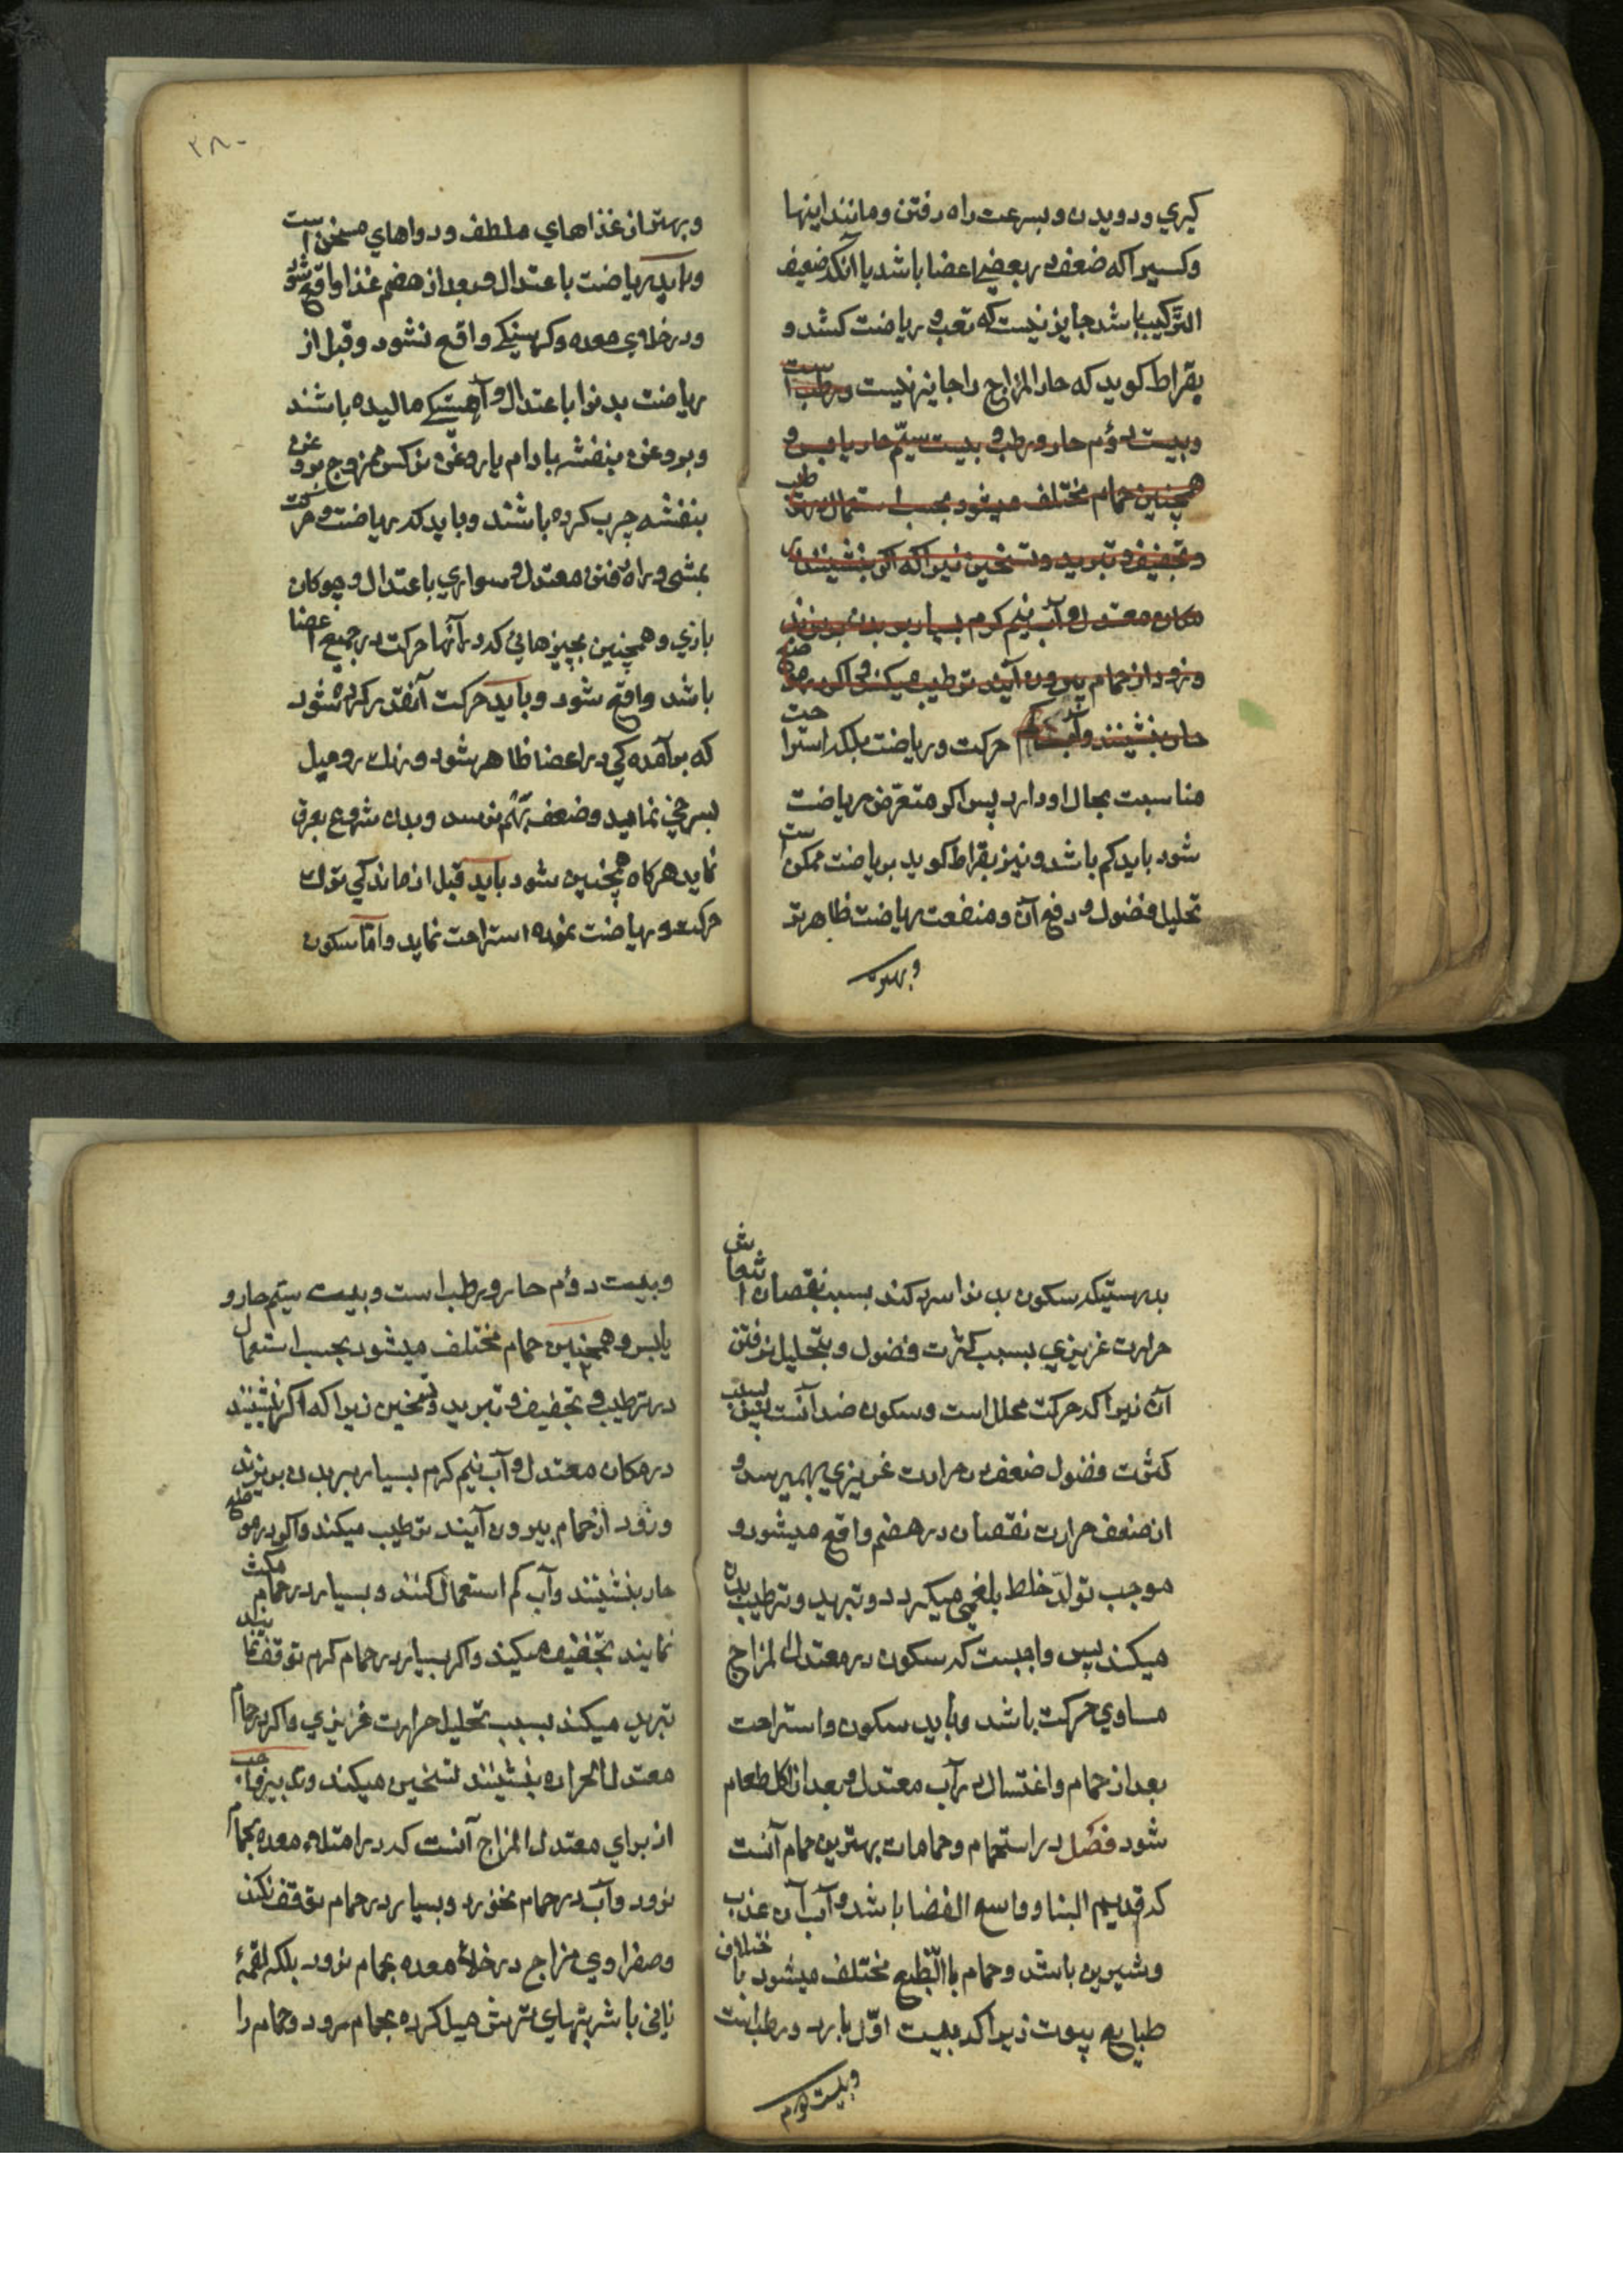 کیری و دویدن و بسرعت راه رفتن و مانند اینها
و کسیرا که ضعف در بعضی اعضا باشد یا آنکه ضعیف
الترکیب باشد جایز نیست که تعب و ریاضت کشد و
بقراط کوید که حار المزاج را جایز نیست و رطب است
و بیت دوّم حار و رطب و بیت سیّم حار یابس و
همچنین حمام مختلف میشود بحسب استعمال در ترطیب
و تجفیف و تبرید و تسخین زیرا که اکر بنشینند در
مکان معتدل و آب نیم کرم بسیار بر بدن بریزند
و زود از حمام بیرون آیند ترطیب میکند و اکر موضع
حار بنشینند و آب کم حرکت و ریاضت بلکه استراحت
مناسبت بحال او دارد پس اکر متعرّض ریاضت
شود باید کم باشد و نیز بقراط کوید بریاضت ممکن است
تحلیل فضول و دفع آن و منفعت ریاضت ظاهرتر
و بهتر
۲۸۰
و بهتر از غذاهای ملطف و دواهای مسخن است
و باید ریاضت باعتدال و بعد از هضم غذا واقع شود
و در خلای معده و کرسنکی واقع نشود و قبل از
ریاضت بدنرا باعتدال و آهستکی مالیده باشند
و بروغن بنفشه بادام یا روغن نرکس ممزوج بروغن
بنفشه چرب کرده باشند و باید که ریاضت و حرکت
بمشی و راه رفتن معتدل و سواری باعتدال و چوکان
بازی و همچنین بچیزهائی که در آنها حرکت در جمیع اعضا
باشد واقع شود و باید حرکت آنقدر کرده شود
که برآمده کی در اعضا ظاهر شود و رنك رو میل
بسرخی نماید و ضعف بهم نرسد و بدن شروع بعرق
نماید هرکاه همچنین شود باید قبل از ماندکی ترك
حرکت و ریاضت نموده استراحت نماید و امّا سکون
بدرستیکه سکون بدنرا سرد کند بسبب نقصان انتعاش
حرارت غریزی بسبب کثرت فضول و بتحلیل نرفتن
آن زیرا که حرکت محلل است و سکون ضد آنست پس بسبب
کثرت فضول ضعف در حرارت غریزی بهمیرسد و
از ضعف حرارت نقصان در هضم واقع میشود و
موجب تولّد خلط بلغمی میکردد و تبرید و ترطیب بدن
میکند پس واجبست که سکون در معتدل المزاج
مساوی حرکت باشد و باید سکون و استراحت
بعد از حمام و اغتسال در آب معتدل و بعد از اکل طعام
شود فصل در استحمام و حمامات بهترین حمام آنست
که قدیم البنا و واسع الفضا باشد و آب آن عذب
و شیرین باشد و حمام باالطّبع مختلف میشود باختلاف
طبایع بیوت زیرا که بیت اوّل بارد و رطب است
و بیت دوم
و بیت دوّم حار و رطب است و بیت سیّم حار و
یابس و همچنین حمام مختلف میشود بحسب استعمال
در ترطیب و تجفیف و تبرید و تسخین زیرا که اکر بنشینند
در مکان معتدل و آب نیم کرم بسیار بر بدن بریزند
و زود از حمام بیرون آیند ترطیب میکند و اکر در موضع
حار بنشینند و آب کم استعمال کنند و بسیار در حمام مکث
نمایند تجفیف میکند و اکر بسیار در حمام کرم توقف نمایند
تبرید میکند بسبب تحلیل حرارت غریزی و اکر در حمام
معتدل الحراره بنشینند تسخین میکند و تدبیر واجب
از برای معتدل المزاج آنست که در امتلاء معده بحمام
نرود و آب در حمام نخورد و بسیار در حمام توقف نکند
و صفراوی مزاج در خلاء معده بحمام نرود بلکه لقمهٔ
نانی با شربتهای ترش میل کرده بحمام رود و حمام را